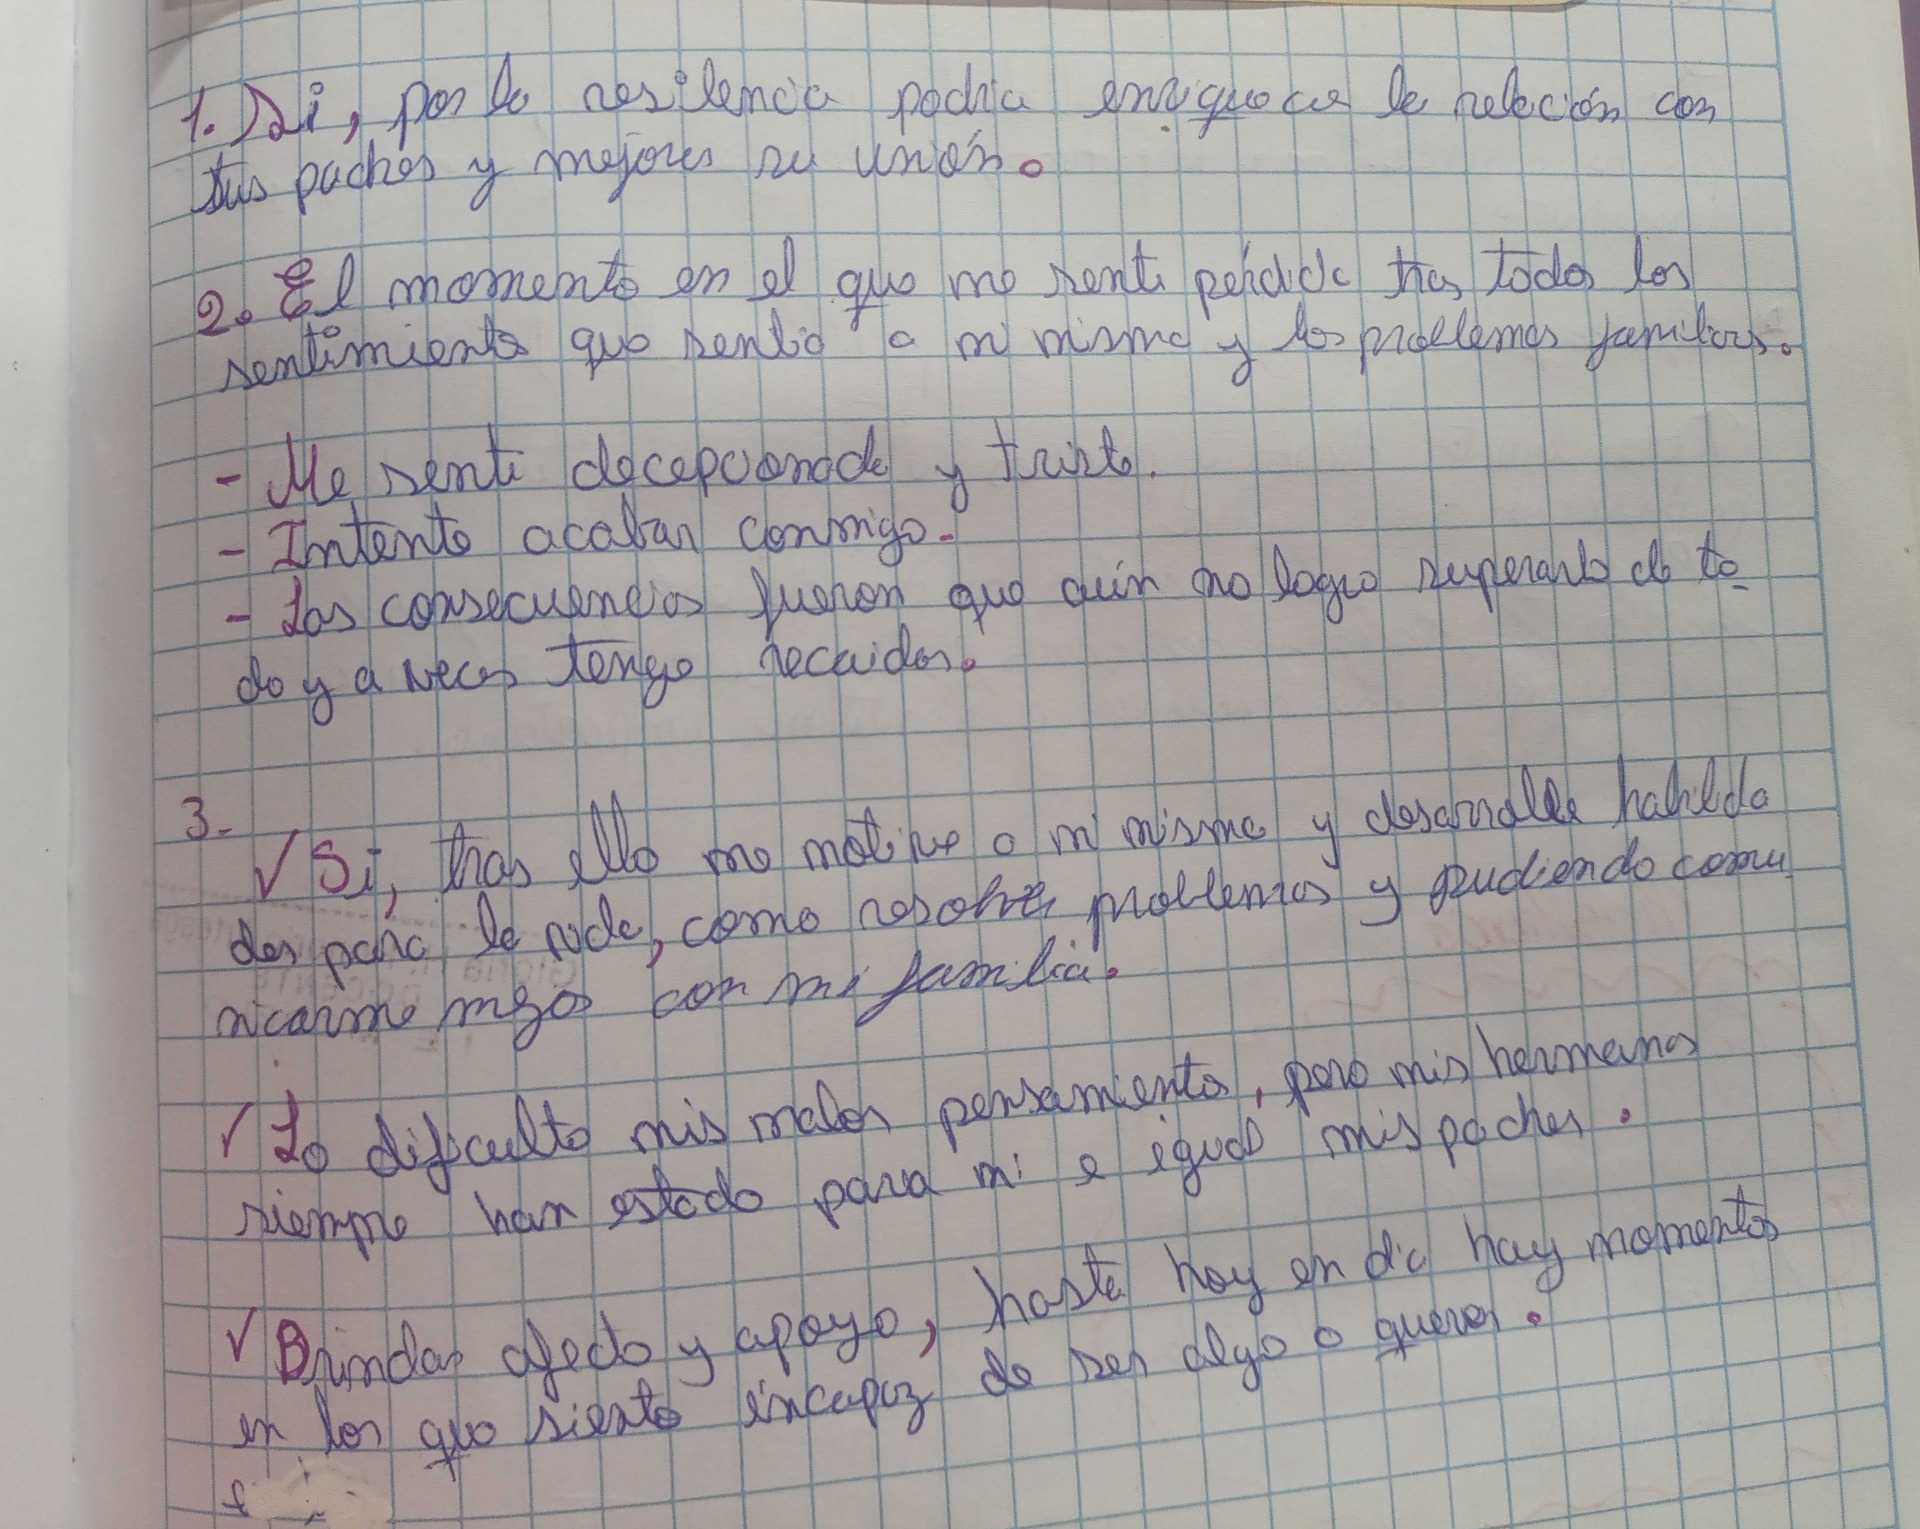 1. Si, por la resilencia podria enriquecer la relación con
tus padres y mejorar su unión.
2. El momento en el que me senti perdida tras todos los
sentimiento que sentia a mi misma y los problemas familiares.
- Me senti decepcionada y triste.
- Intente acabar conmigo.
- Las consecuencias fueron que aún no logro superarlo de to-
do y a veces tengo recaidas.
3-
✓ Si, tras ello me motive a mi misma y desarrolle habilida
des para la vida, como resolver problemas y pudiendo comu
nicarme mejor con mi familia.
✓ Lo dificulto mis malos pensamientos, pero mis hermanos
siempre han estado para mi e igual mis padres.
✓ Brindar afecto y apoyo, hasta hoy en dia hay momentos
en los que siento incapaz de ser algo o querer.